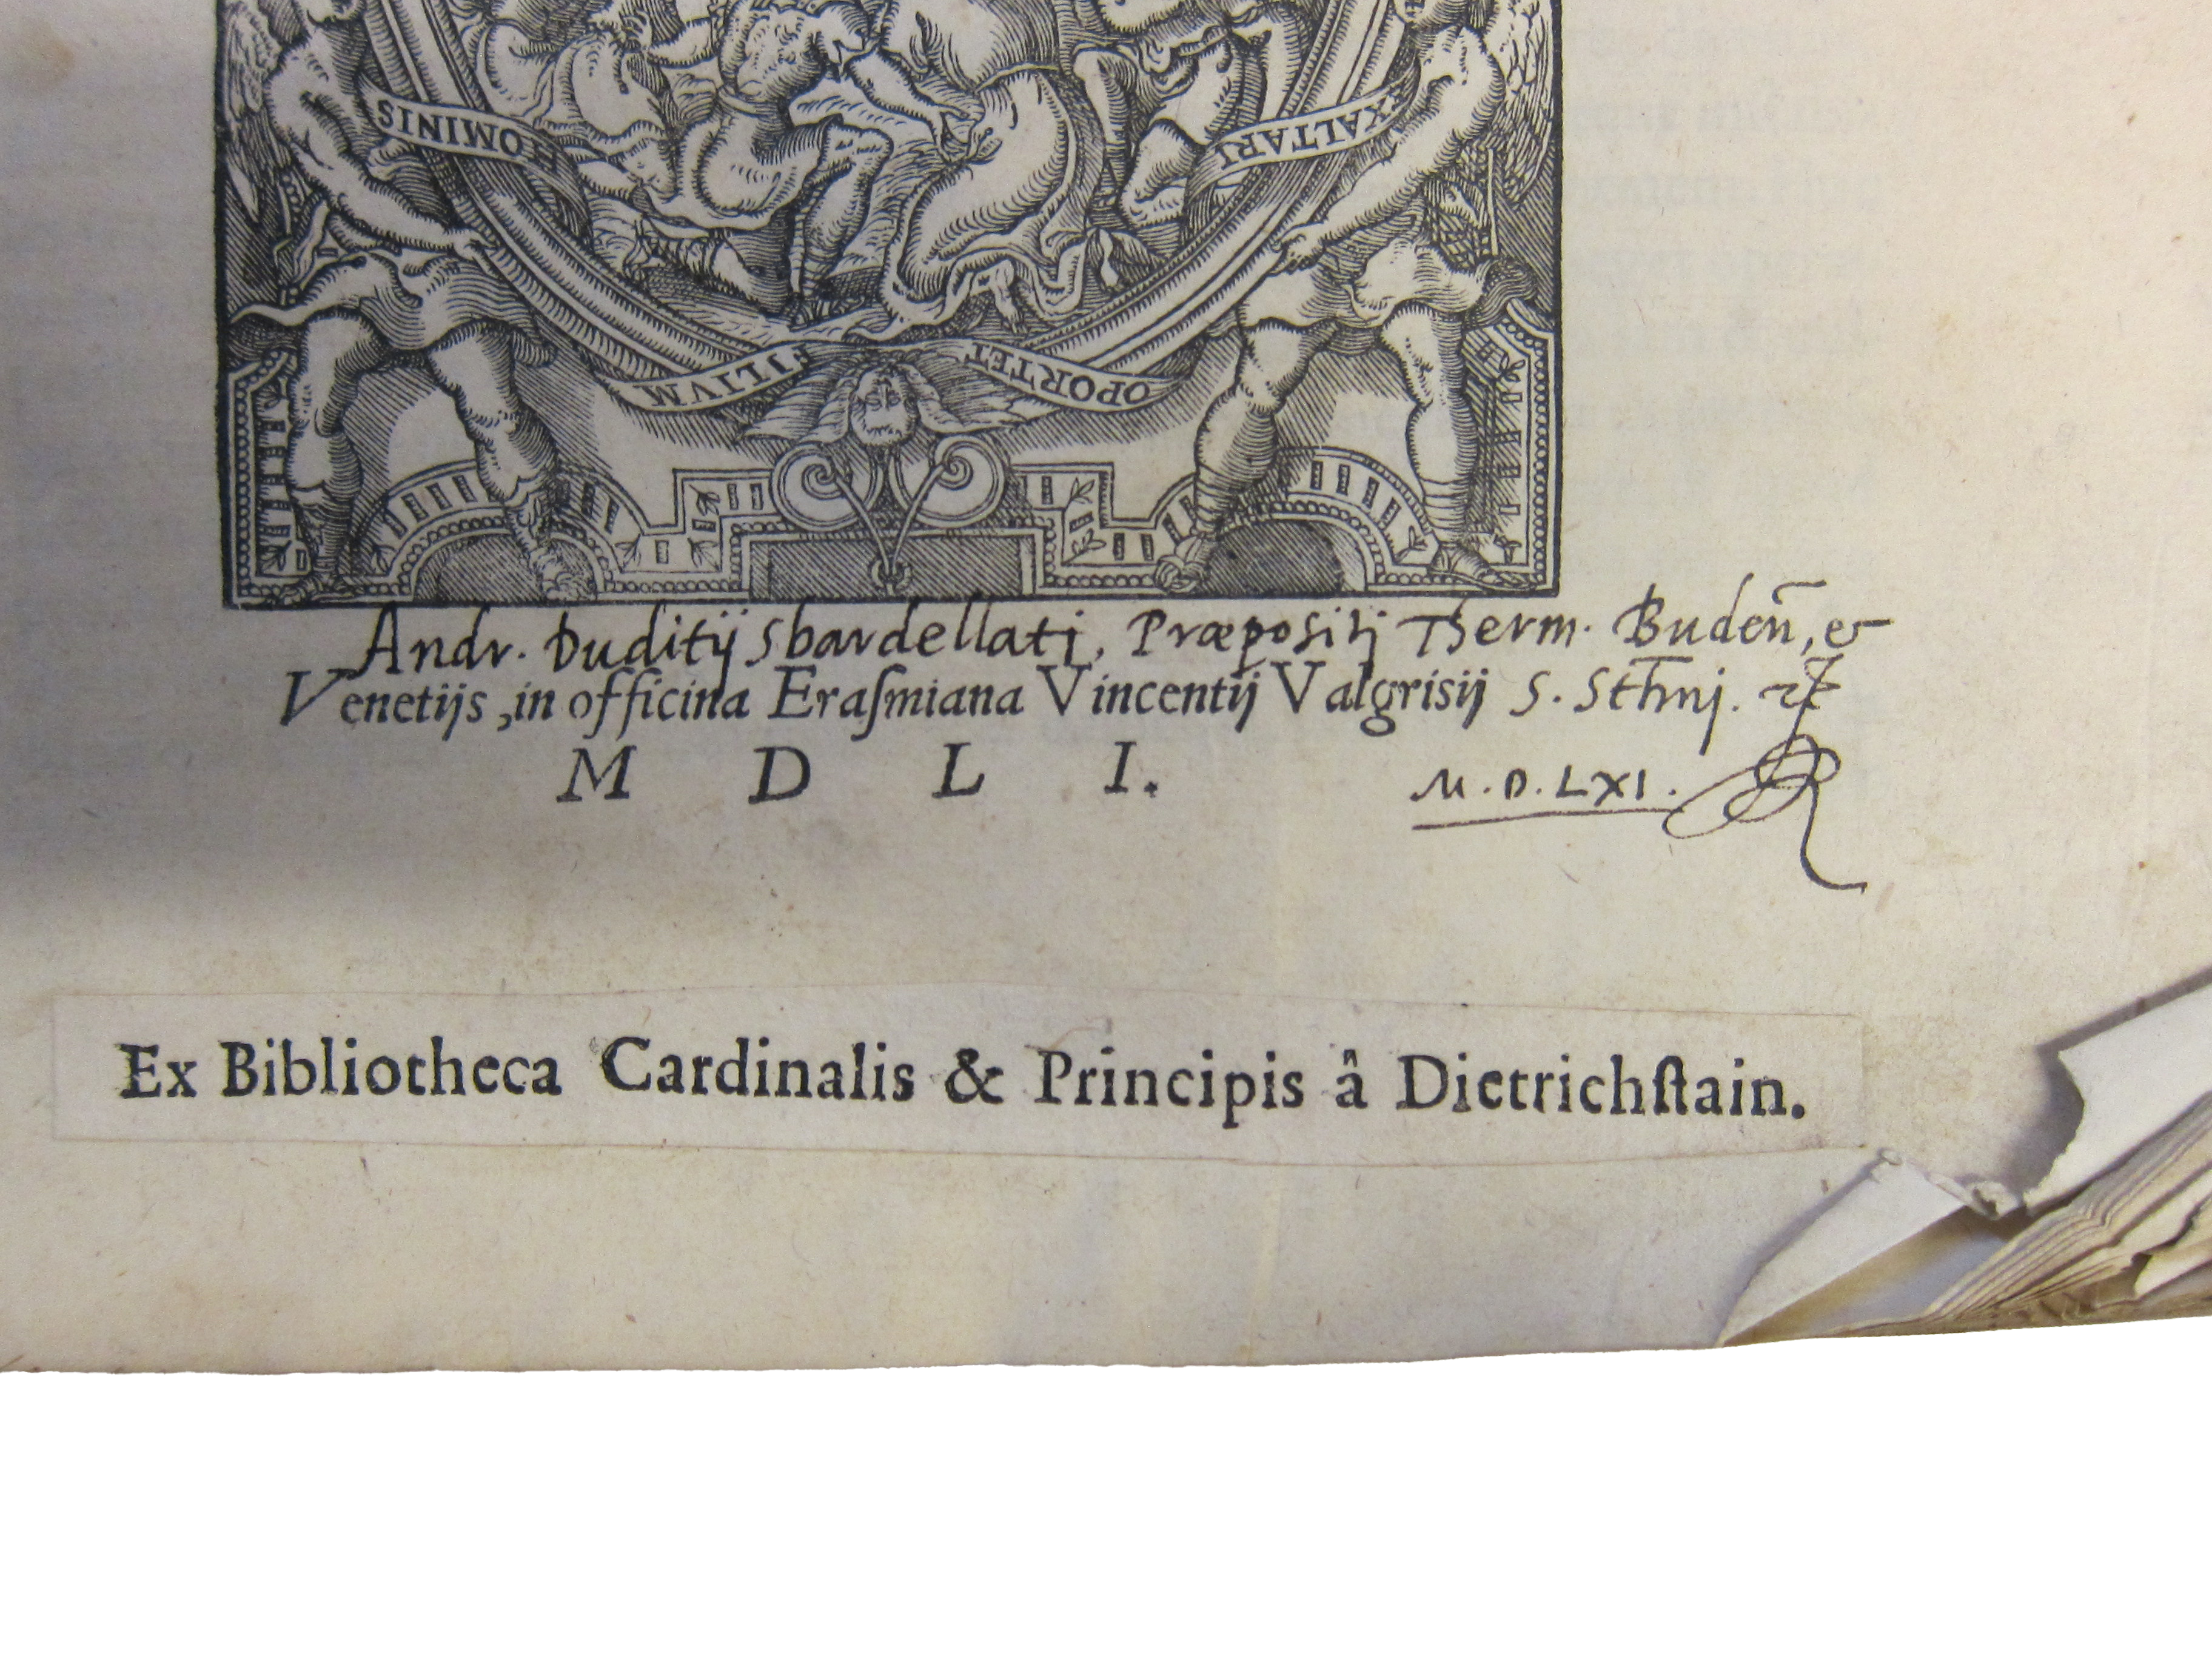 HOMINIS
EXALTARI
FILIVM
OPORTET
Andr. Duditij Sbardellati, Præpositi Therm. Buden̄, et
Venetijs, in officina Eraſmiana Vincentij Valgrisij S. Sth̄ni.
M D L I.
M.D.LXI.
Ex Bibliotheca Cardinalis & Principis â Dietrichſtain.